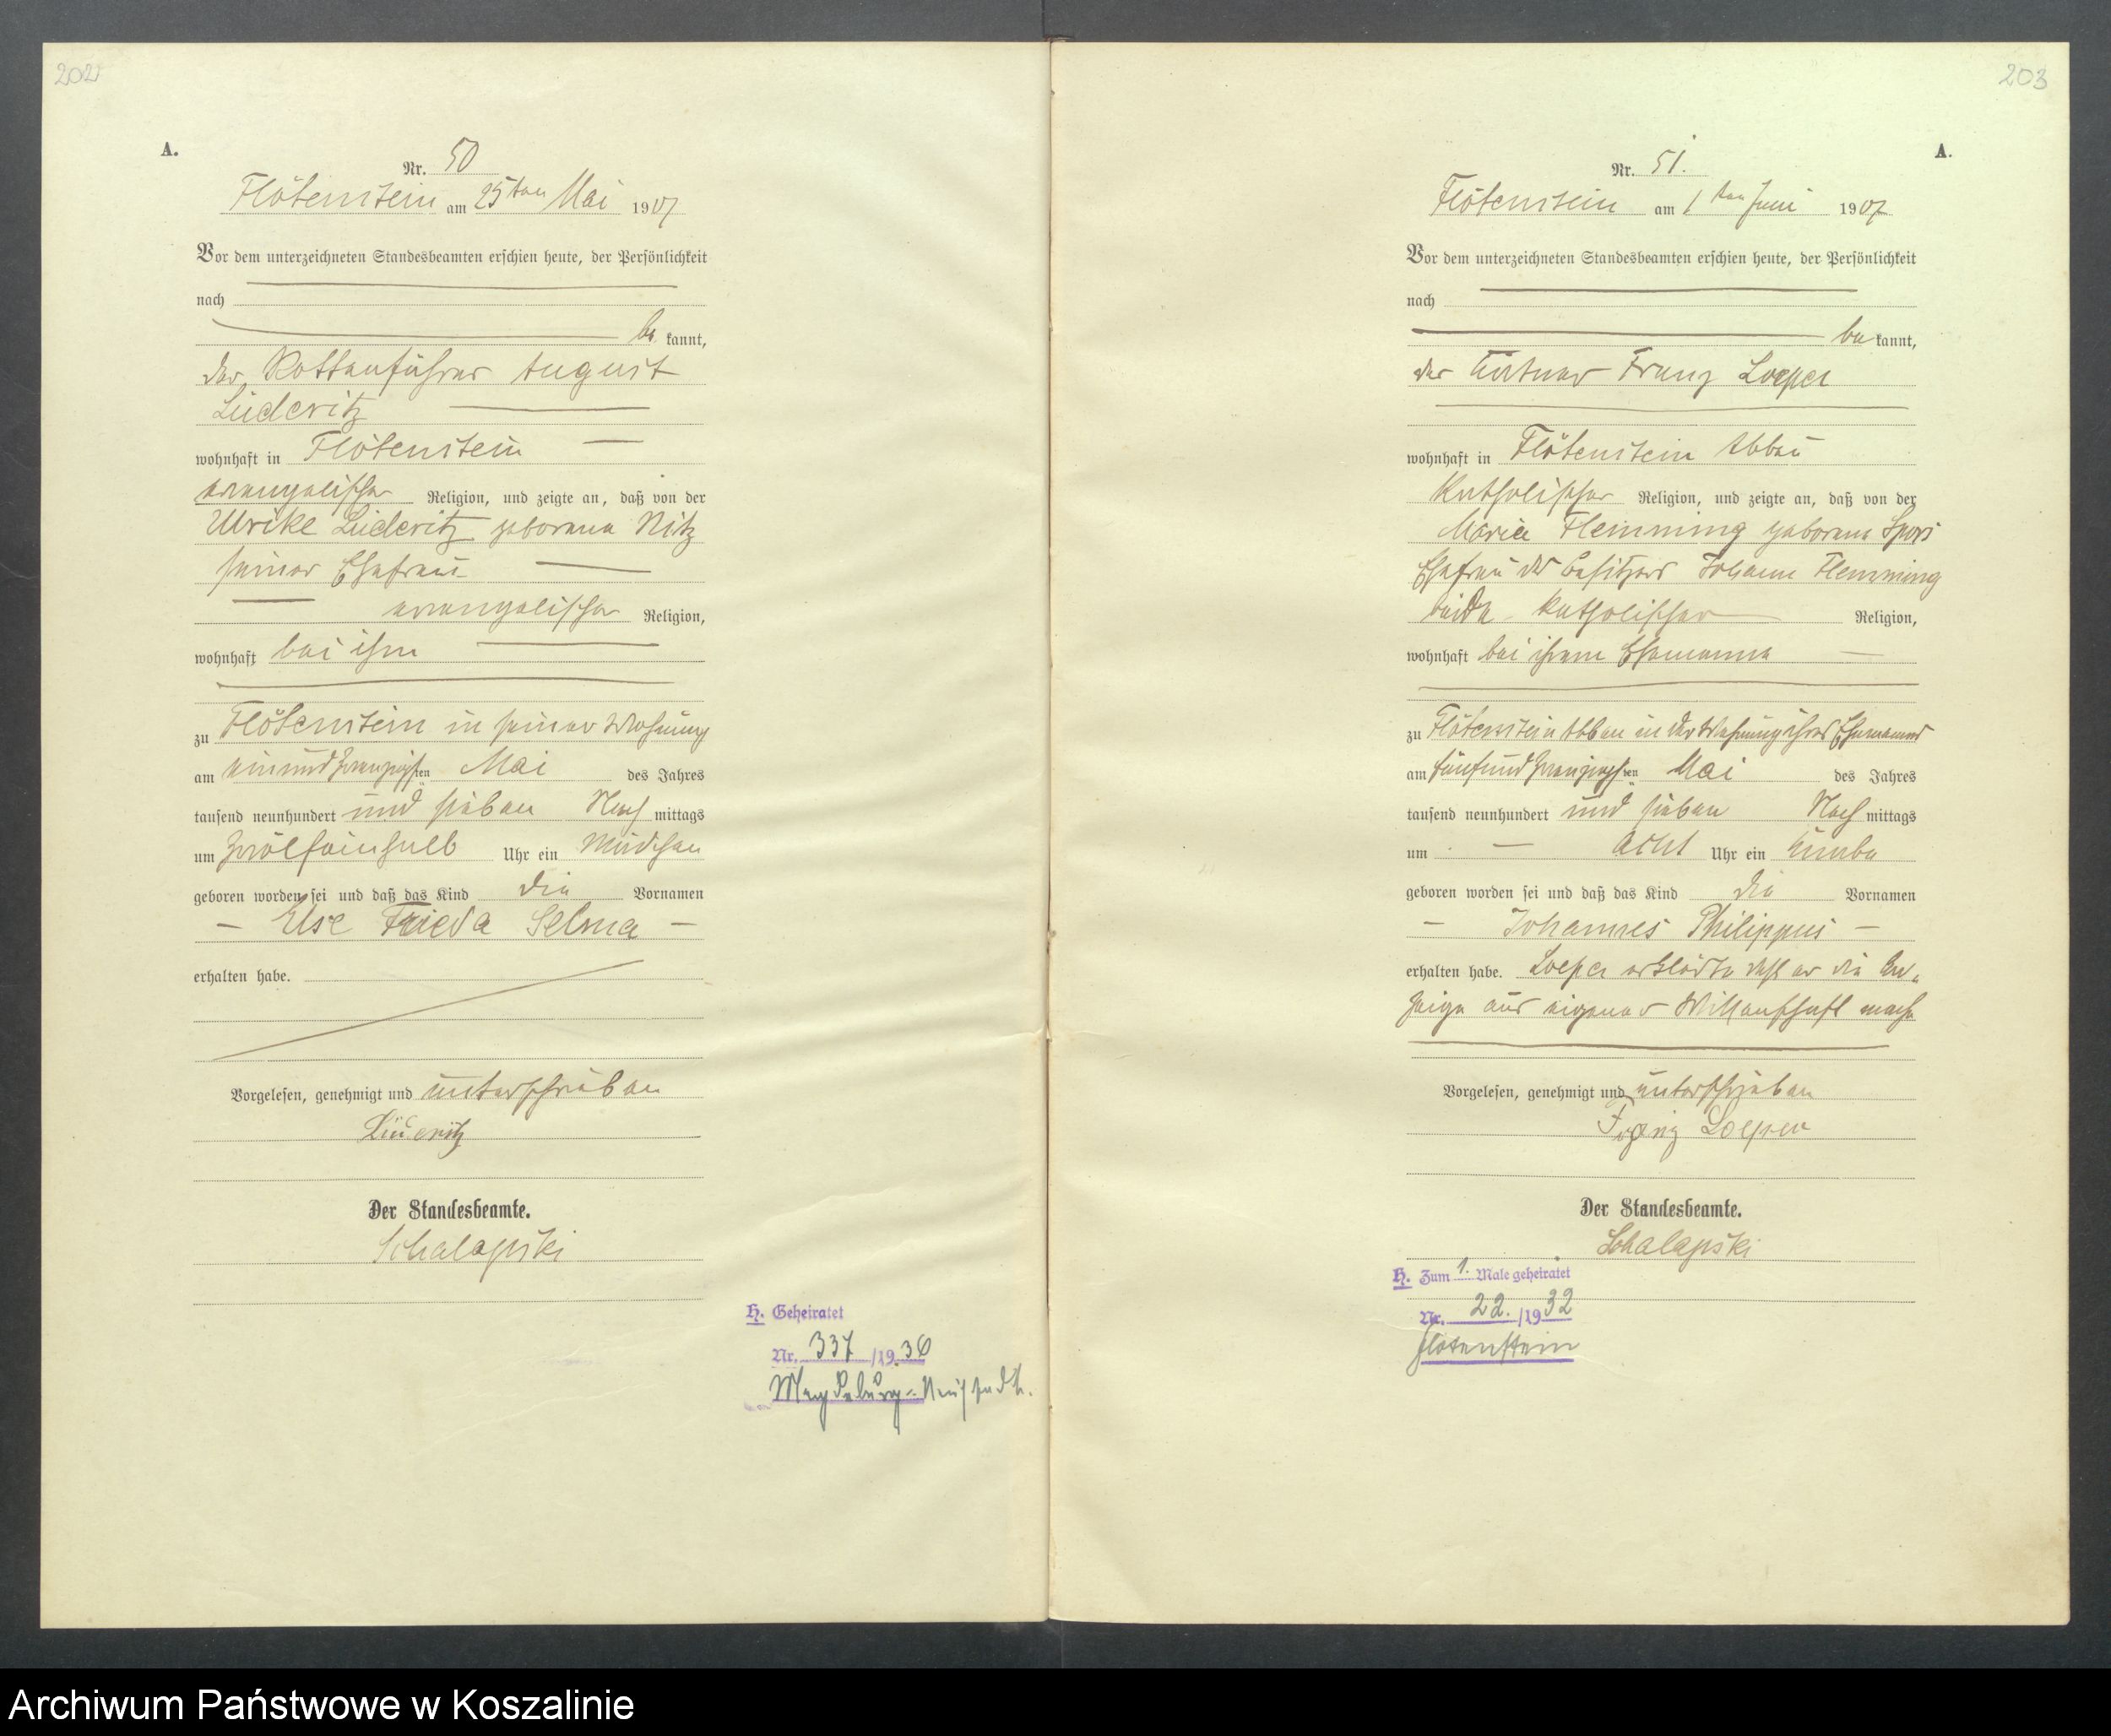 202
A.
Nr. 50
Flötenstein am 25ten Mai 1907
Vor dem unterzeichneten Standesbeamten erschien heute, der Persönlichkeit
nach
be kannt,
der Rottenführer August
Lüderitz
wohnhaft in Flötenstein
evangelischer Religion, und zeigte an, daß von der
Ulrike Lüderitz geborene Nitz
seiner Ehefrau
evangelischer Religion,
wohnhaft bei ihm
zu Flötenstein in seiner Wohnung
am einundzwanzigsten Mai des Jahres
tausend neunhundert und sieben Nach mittags
um zwölfeinhalb Uhr ein Mädchen
geboren worden sei und daß das Kind die Vornamen
- Else Frieda Selma -
erhalten habe.
Vorgelesen, genehmigt und unterschrieben
Lüderitz
Der Standesbeamte.
Schalapski
H. Geheiratet
Nr. 337 /1936
Magdeburg-Neustadt.
203
A.
Nr. 51.
Flötenstein am 1ten Juni 1907
Vor dem unterzeichneten Standesbeamten erschien heute, der Persönlichkeit
nach
be kannt,
der Kätner Franz Loeper
wohnhaft in Flötenstein Abbau
katholischer Religion, und zeigte an, daß von der
Maria Flemming geborene Spors
Ehefrau des Besitzers Johann Flemming
beide katholischer Religion,
wohnhaft bei ihrem Ehemanne
zu Flötenstein Abbau in der Wohnung ihres Ehemannes
am fünfundzwanzigsten Mai des Jahres
tausend neunhundert und sieben Nach mittags
um - acht Uhr ein Knabe
geboren worden sei und daß das Kind die Vornamen
- Johannes Philippus -
erhalten habe. Loeper erklärte daß er die An-
zeige aus eigener Wissenschaft mache
Vorgelesen, genehmigt und unterschrieben
Franz Loeper
Der Standesbeamte.
Schalapski
H. Zum 1. Male geheiratet
Nr. 22. /1932
Flötenstein
Archiwum Państwowe w Koszalinie